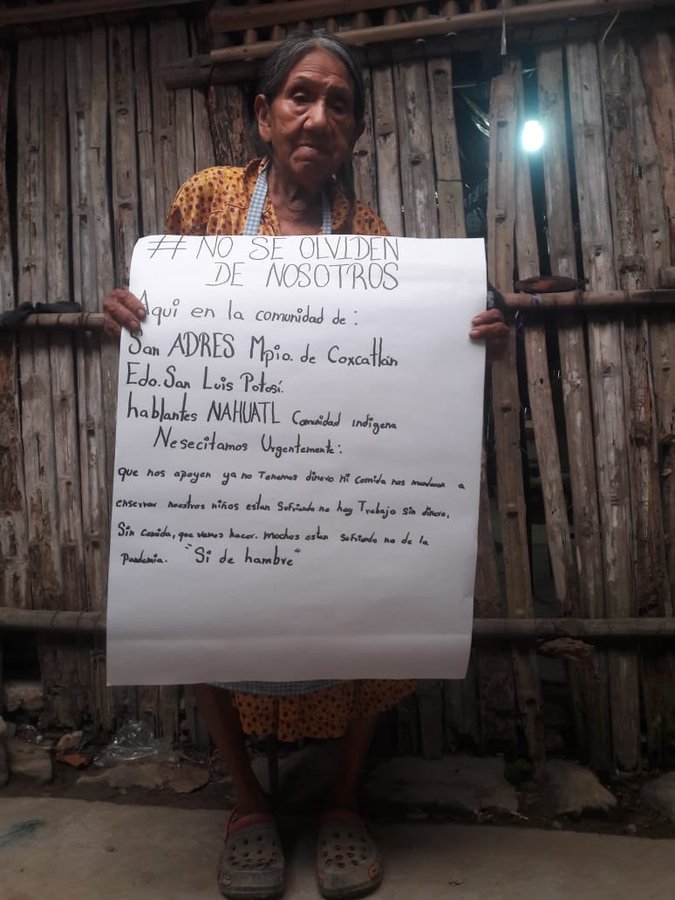 # NO SE OLVIDEN
DE NOSOTROS
Aqui en la comunidad de:
San ADRES Mpio. de Coxcatlán
Edo. San Luis Potosí.
hablantes NAHUATL Comunidad indigena
Nesecitamos Urgentemente:
que nos apoyen ya no Tenemos dinero ni comida nos mandaron a
enserrar nuestros niños estan Sufriendo no hay Trabajo Sin dinero,
Sin comida, que vamos hacer. muchos estan sufriendo no de la
pandemia. "Si de hambre"